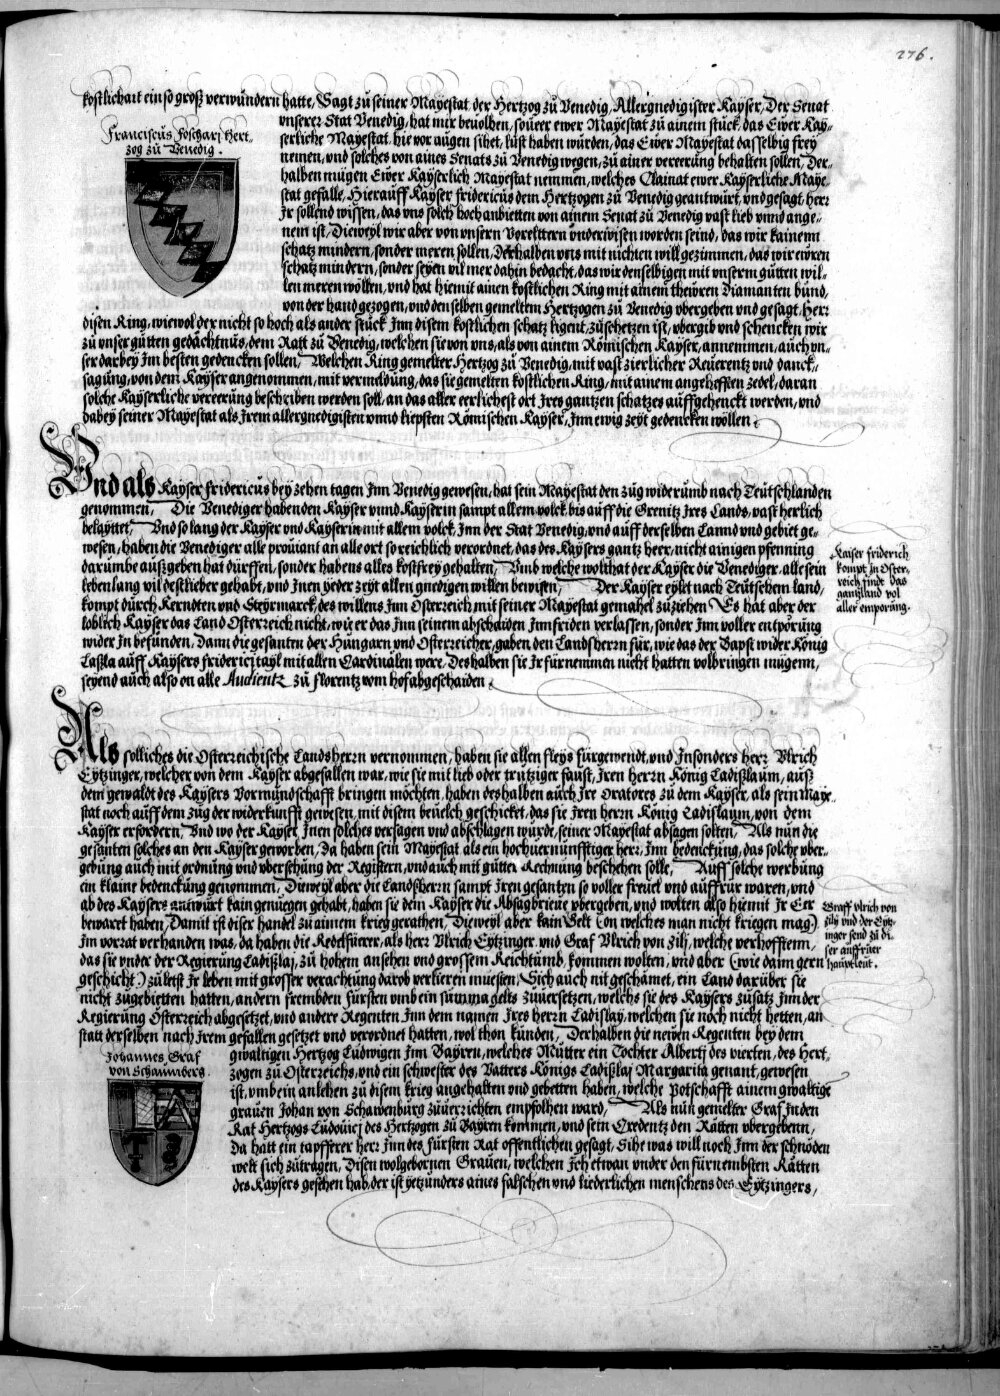 276.
kostlichait ein so groß verwundern hatte, Sagt zu seiner Mayestat der Hertzog zu Venedig, Allergnedigister Kayser, Der Senat
unserer Stat Venedig, hat mir bevolhen, soüeer ewer Mayestat zu ainem stuck, das Ewer Kay-
serliche Mayestat, hie vor augen sihet, lust haben wurden, das Ewer Mayestat dasselbig frey
nemen, und solches von aines Senats zu Venedig wegen, zu ainer vereerung behalten sollen, Der-
halben mügen Ewer Kayserlich Mayestat nemmen, welches Clainat ewer Kayserliche Maye-
stat gefalle, Hierauff Kayser fridericus dem Hertzogen zu Venedig geantwurt, und gesagt, herr
Ir sollend wissen, das uns solch hoch anbietten von ainem Senat zu Venedig vast lieb unnd ange-
nem ist, Dieweyl wir aber von unsern Vorelttern underwisen worden seind, das wir kainem
schatz mindern, sonder meren sollen, Derhalben uns mit nichten will gezimmen, das wir ewren
schatz mindern, sonder seyen vil mer dahin bedacht, das wir denselbigen mit unserm gutten wil-
len meren wöllen, und hat hiemit ainen kostlichen Ring mit ainem thewren Diamanten bund,
von der hand gezogen, und denselben gemeltem Hertzogen zu Venedig ubergeben und gesagt, Herr
Franciscus Foschari Hert-
zog zu Venedig.
disen Ring, wiewol der nicht so hoch als ander stuck Inn disem kostlichen schatz ligent, zuschetzen ist, ubergib und schencken wir
zu unser gutten gedächtnus, dem Ratt zu Venedig, welchen sie von uns, als von ainem Römischen Kayser, annemmen, auch un-
ser darbey Im besten gedencken sollen, Welchen Ring gemelter Hertzog zu Venedig, mit vast zierlicher Reuerentz und danck-
sagung, von dem Kayser angenommen, mit vermeldung, das sie gemelten kostlichen Ring, mit ainem angehefften zedel, daran
solche Kayserliche vereerung beschriben werden soll, an das aller eerlichest ort Ires gantzen schatzes auffgehenckt werden, und
dabey seiner Mayestat als Irem allergnedigisten unnd liepsten Römischen Kayser, Inn ewig zeyt gedencken wöllen.
Und als Kayser fridericus bey zehen tagen Inn Venedig gewesen, hat sein Mayestat den zug widerumb nach Teutschlanden
genommen, Die Venediger haben den Kayser unnd Kayserin sampt allem volck bis auff die Grenitz Ires Lands, vast herlich
belaytet, Und so lang der Kayser und Kayserin mit allem volck, Inn der Stat Venedig, und auff derselben Lannd und gebiet ge-
wesen, haben die Venediger alle proviant an alle ort so reichlich verordnet, das des Kaysers gantz heer, nicht ainigen pfenning
darumbe außgeben hat dürffen, sonder habens alles kostfrey gehalten, Umb welche wolthat der Kayser die Venediger alle sein
lebenlang vil dest lieber gehabt, und Inen yeder zeyt allen gnedigen willen bewisen, Der Kayser eylet nach Teutschem land,
kompt durch Kerndten und Steyrmarck, des willens Inn Osterreich mit seiner Mayestat gemahel zuziehen Es hat aber der
loblich Kayser das Land Osterreich nicht, wie er das Inn seinem abschaiden Inn friden verlassen, sonder Inn voller entpörung
wider In befunden, Dann die gesanten der Hungarn und Osterreicher, gaben den Landsherrn für, wie das der Bapst wider König
Laßla auff Kaysers friderici tayl mit allen Cardinalen were, Deshalben sie Ir fürnemmen nicht hatten volbringen mügenn,
seyend auch also on alle Audientz zu florentz vom hof abgeschaiden.
Kaiser friderich
kompt in Oster-
reich findt das
gantz land vol
aller emporung.
Als solliches die Osterreichische Landsherrn vernommen, haben sie allen fleys fürgewendt, und Insonders herr Ulrich
Eytzinger, welcher von dem Kayser abgefallen war, wie sie mit lieb oder trutziger faust, Iren herrn König Ladißlaum, auß
dem gewaldt des Kaysers Vormundschafft bringen möchten, haben deshalben auch Ire Oratores zu dem Kayser, als sein Maye-
stat noch auff dem zug der widerkunfft gewesen, mit disem bevelch geschicket, das sie Iren herrn König Ladislaum, von dem
Kayser erfordern, Und wo der Kayser Inen solches versagen und abschlagen wurde, seiner Mayestat absagen solten, Als nun die
gesanten solches an den Kayser geworben, Da haben sein Mayestat als ein hochvernunfftiger herr, Inn bedenckung, das solche uber-
gebung auch mit ordnung und ubersehung der Registern, und auch mit gutter Rechnung beschehen solle, Auff solche werbung
ein klaine bedenckung genommen, Dieweyl aber die Landsherrn sampt Iren gesanten so voller freuel und auffrur waren, und
ab des Kaysers antwurt kain genuegen gehabt, haben sie dem Kayser die Absagbrieve ubergeben, und wolten also hiemit Ir Eer
bewaret haben, Damit ist diser handel zu ainem krieg gerathen, Dieweyl aber kain Gelt (on welches man nicht kriegen mag)
Im vorrat verhanden was, da haben die Redelfüerer, als herr Ulrich Eytzinger und Graf Ulrich von Zilj, welche verhofftenn,
das sie under der Regierung Ladißlaj, zu hohem ansehen und grossem Reichtumb, kommen wolten, und aber (wie dann gern
geschicht) zuletst Ir leben mit grosser verachtung darob verlieren muesten, Sich auch nit geschämet, ein Land darüber sie
nicht zugebietten hatten, andern frembden fürsten umb ein summa gelts zuversetzen, welchs sie des Kaysers zusatz Inn der
Regierung Osterreich abgesetzt, und andere Regenten Inn dem namen Ires herrn Ladislay, welchen sie noch nicht hetten, an
statt derselben nach Irem gefallen gesetzet und verordnet hatten, wol thon künden, Derhalben die newen Regenten bey dem
Graff Ulrich von
Zilj und der Eytz-
inger send zu di-
ser auffruer
hauptleut.
gwaltigen Hertzog Ludwigen Inn Bayren, welches Mutter ein Tochter Albertj des vierten, des Hert-
zogen zu Osterreichs, und ein schwester des Vatters Königs Ladißlaj Margarita genant, gewesen
ist, umb ein anlehen zu disem krieg angehalten und gebetten haben, welche Potschafft ainem gwaltige
grauen Johan von Schawenburg zuuerrichten empfolhen ward, Als nun gemelter Graf In den
Rat Hertzogs Ludouicj des Hertzogen zu Bayren kommen, und sein Credentz den Rätten ubergebenn,
Da hatt ein tapfferer herr Inn des fürsten Rat offentlichen gesagt, Sihe was will noch Inn der schnöden
welt sich zutragen, Disen wolgebornen Grauen, welchen Ich etwan under den fürnembsten Rätten
des Kaysers gesehen hab, der ist yetzunders aines falschen und liederlichen menschens des Eytzingers,
Johannes Graf
von Schaunberg.